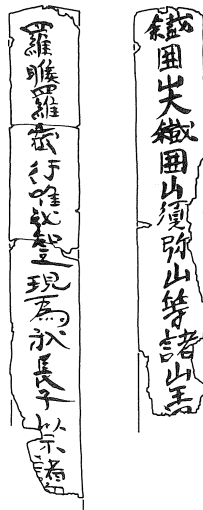 鐵囲山大鐵囲山須弥山等諸山王
羅睺羅密行唯我能知之現為我長子以示諸